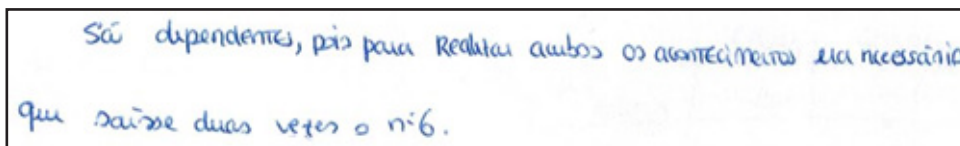 Sã dependentes, pois para Realizar ambos os acontecimentos era necessário
que saisse duas vezes o nº6.